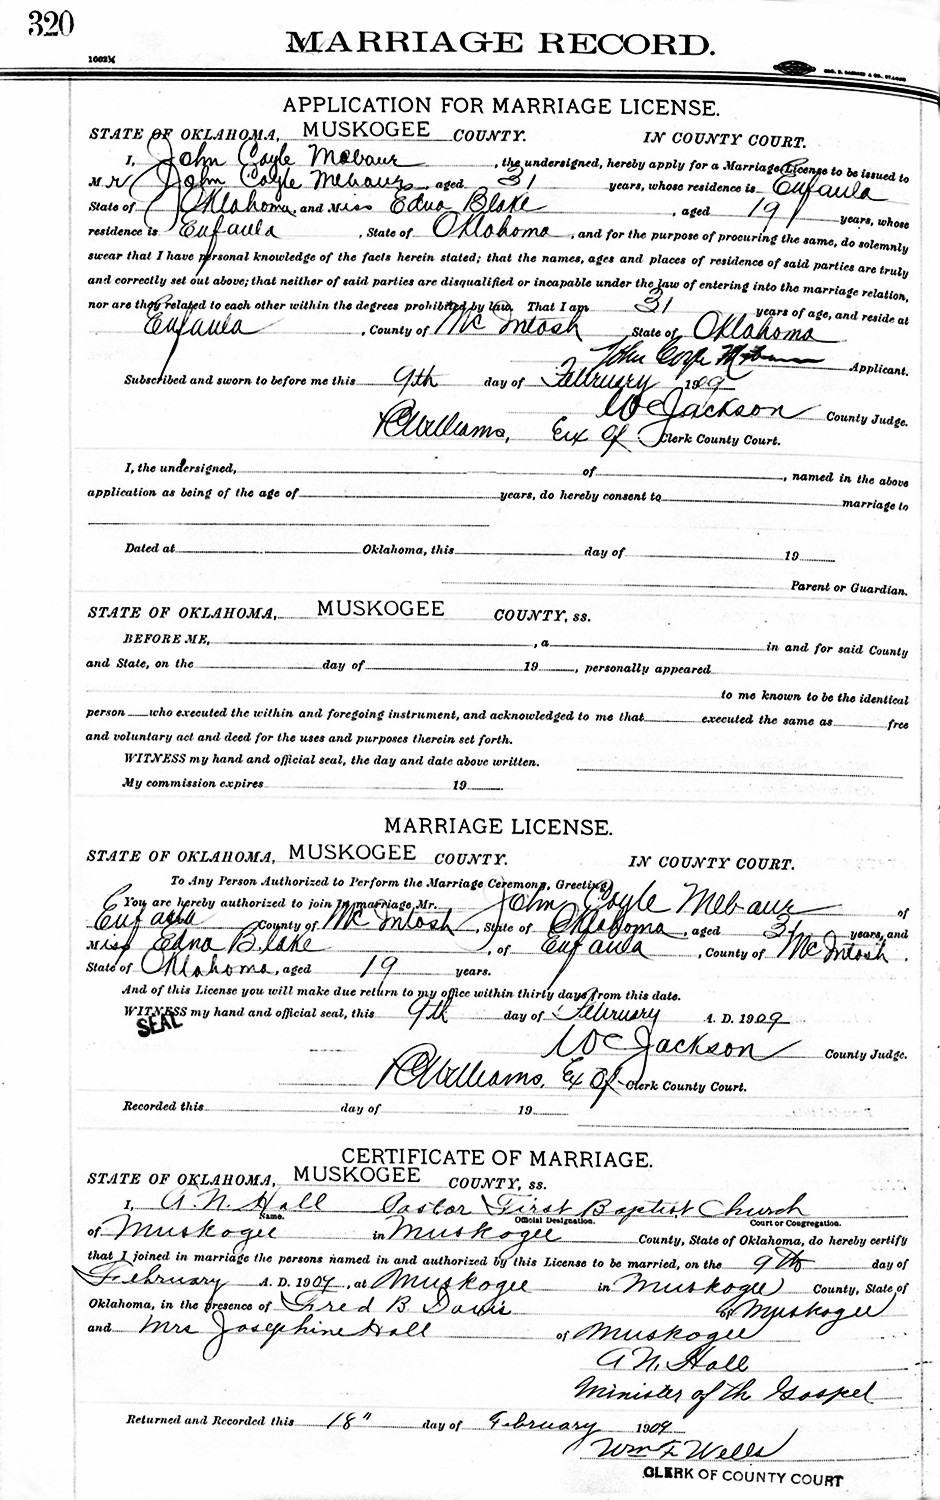 320
MARRIAGE RECORD.
1002½
APPLICATION FOR MARRIAGE LICENSE.
STATE OF OKLAHOMA, MUSKOGEE COUNTY. IN COUNTY COURT.
I, John Coyle Mebaur, the undersigned, hereby apply for a Marriage License to be issued to
Mr John Coyle Mebaur, aged 31 years, whose residence is Eufaula
State of Oklahoma, and Miss Edna Blake, aged 19 years, whose
residence is Eufaula, State of Oklahoma, and for the purpose of procuring the same, do solemnly
swear that I have personal knowledge of the facts herein stated; that the names, ages and places of residence of said parties are truly
and correctly set out above; that neither of said parties are disqualified or incapable under the law of entering into the marriage relation,
nor are they related to each other within the degrees prohibited by law. That I am 31 years of age, and reside at
Eufaula, County of McIntosh State of Oklahoma
John Coyle Applicant.
Subscribed and sworn to before me this 9th day of February 1909
WC Jackson County Judge.
RC Williams, Ex Of Clerk County Court.
I, the undersigned, of, named in the above
application as being of the age of years, do hereby consent to marriage to
Dated at Oklahoma, this day of 19
Parent or Guardian.
STATE OF OKLAHOMA, MUSKOGEE COUNTY, ss.
BEFORE ME, , a in and for said County
and State, on the day of 19, personally appeared
to me known to be the identical
person who executed the within and foregoing instrument, and acknowledged to me that executed the same as free
and voluntary act and deed for the uses and purposes therein set forth.
WITNESS my hand and official seal, the day and date above written.
My commission expires 19
MARRIAGE LICENSE.
STATE OF OKLAHOMA, MUSKOGEE COUNTY. IN COUNTY COURT.
To Any Person Authorized to Perform the Marriage Ceremony, Greeting:
You are hereby authorized to join in marriage Mr. John Coyle Mebaur of
Eufaula County of McIntosh, State of Oklahoma, aged 31 years, and
Miss Edna Blake, of Eufaula, County of McIntosh.
State of Oklahoma, aged 19 years.
And of this License you will make due return to my office within thirty days from this date.
WITNESS my hand and official seal, this 9th day of February A. D. 1909
SEAL
WC Jackson County Judge.
RC Williams, Ex Of Clerk County Court.
Recorded this day of 19
CERTIFICATE OF MARRIAGE.
STATE OF OKLAHOMA, MUSKOGEE COUNTY, ss.
I, A. N. Hall Pastor First Baptist Church
Name. Official Designation. Court or Congregation.
of Muskogee in Muskogee County, State of Oklahoma, do hereby certify
that I joined in marriage the persons named in and authorized by this License to be married, on the 9th day of
February A. D. 1909, at Muskogee in Muskogee County, State of
Oklahoma, in the presence of Fred B. Davis of Muskogee
and Mrs Josephine Hall of Muskogee
A N. Hall
Minister of the Gospel
Returned and Recorded this 18" day of February 1909
Wm F Wells
CLERK OF COUNTY COURT